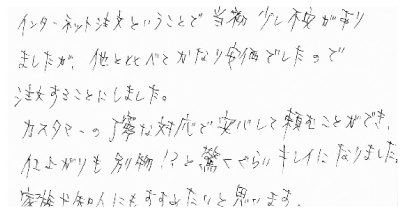 インターネット注文ということで当初少し不安があり
ましたが、他とくらべてかなり安価でしたので
注文することにしました。
カスタマーの丁寧な対応で安心して頼むことができ、
仕上がりも別物!?と驚くぐらいキレイになりました。
家族や知人にもすすめたいと思います。